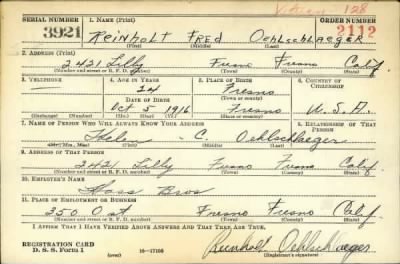 SERIAL NUMBER 1. NAME (Print) ORDER NUMBER
3921 Reinholt Fred Oehlschlaeger 2112
(First) (Middle) (Last)
2. ADDRESS (Print)
2421 Lilly Fresno Fresno Calif.
(Number and street or R. F. D. number) (Town) (County) (State)
3. TELEPHONE 4. AGE IN YEARS 5. PLACE OF BIRTH 6. COUNTRY OF CITIZENSHIP
24 Fresno
DATE OF BIRTH (Town or county)
Oct 5 1916 Fresno U.S.A.
(Exchange) (Number) (Mo.) (Day) (Yr.) (State or country)
7. NAME OF PERSON WHO WILL ALWAYS KNOW YOUR ADDRESS 8. RELATIONSHIP OF THAT PERSON
Helen C. Oehlschlaeger
(Mr., Mrs., Miss) (First) (Middle) (Last)
9. ADDRESS OF THAT PERSON
2421 Lilly Fresno Fresno Calif
(Number and street or R. F. D. number) (Town) (County) (State)
10. EMPLOYER'S NAME
Bros
11. PLACE OF EMPLOYMENT OR BUSINESS
350 O st Fresno Fresno Calif
(Number and street or R. F. D. number) (Town) (County) (State)
I AFFIRM THAT I HAVE VERIFIED ABOVE ANSWERS AND THAT THEY ARE TRUE.
REGISTRATION CARD
D. S. S. Form 1 (over) 16—17105 Reinholt Oehlschlaeger
(Registrant's signature)